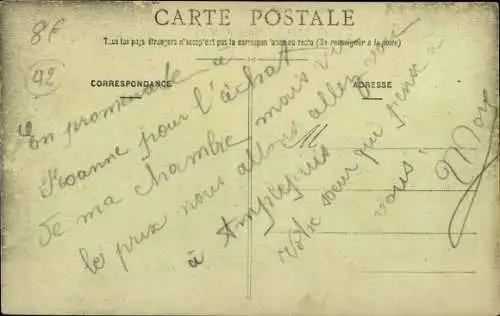 8f
42
CARTE POSTALE
Tous les pays étrangers n'acceptent pas la correspondance au recto (Se renseigner à la poste)
CORRESPONDANCE
ADRESSE
M
En promenade à
Roanne pour l'achat
de ma chambre mais vu
le prix nous allons aller voir
à Amplepuis
Votre sœur qui pense à
vous